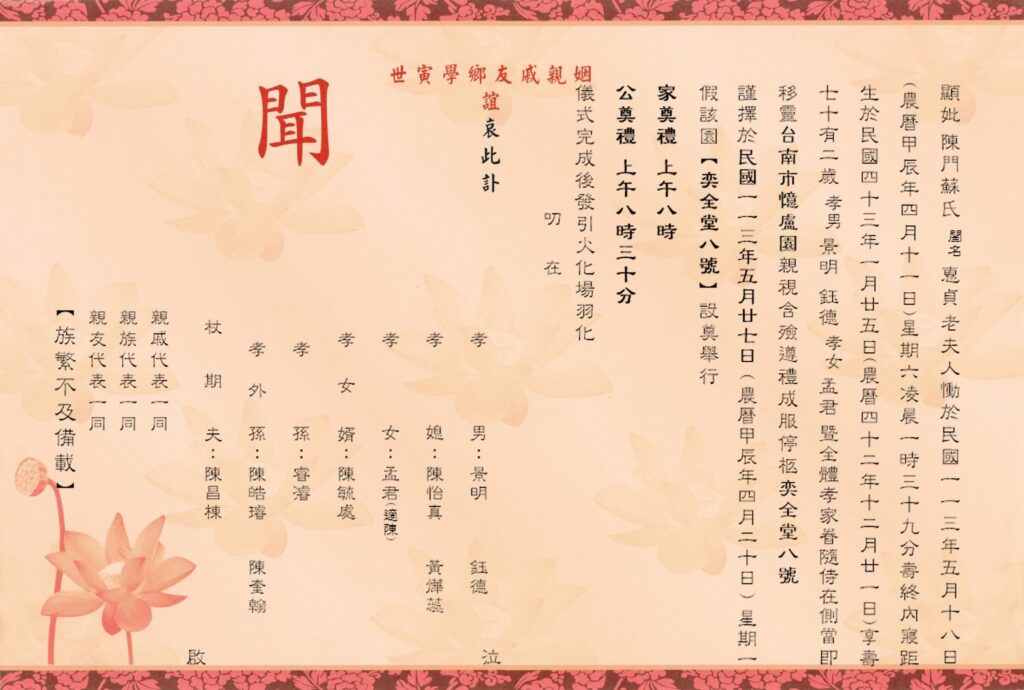 顯妣 陳門蘇氏 閨名 惠貞 老夫人慟於民國一一三年五月十八日
(農曆甲辰年四月十一日)星期六凌晨一時三十九分壽終內寢距
生於民國四十三年一月廿五日(農曆四十二年十二月廿一日)享壽
七十有二歲 孝男 景明 鈺德 孝女 孟君 暨全體孝家眷隨侍在側當即
移靈台南市憶盧園親視含殮遵禮成服停柩奕全堂八號
謹擇於民國一一三年五月廿七日(農曆甲辰年四月二十日)星期一
假該園【奕全堂八號】設奠舉行
家奠禮 上午八時
公奠禮 上午八時三十分
儀式完成後發引火化場羽化
叨在
姻親戚友鄉學寅世
誼哀此訃
聞
孝男:景明 鈺德 泣
孝媳:陳怡真 黃燁蕊
孝女:孟君(適陳)
孝女婿:陳毓處
孝孫:睿濬
孝外孫:陳皓璿 陳奎翰
杖期夫:陳昌棟 啟
親戚代表一同
親族代表一同
親友代表一同
【族繁不及備載】